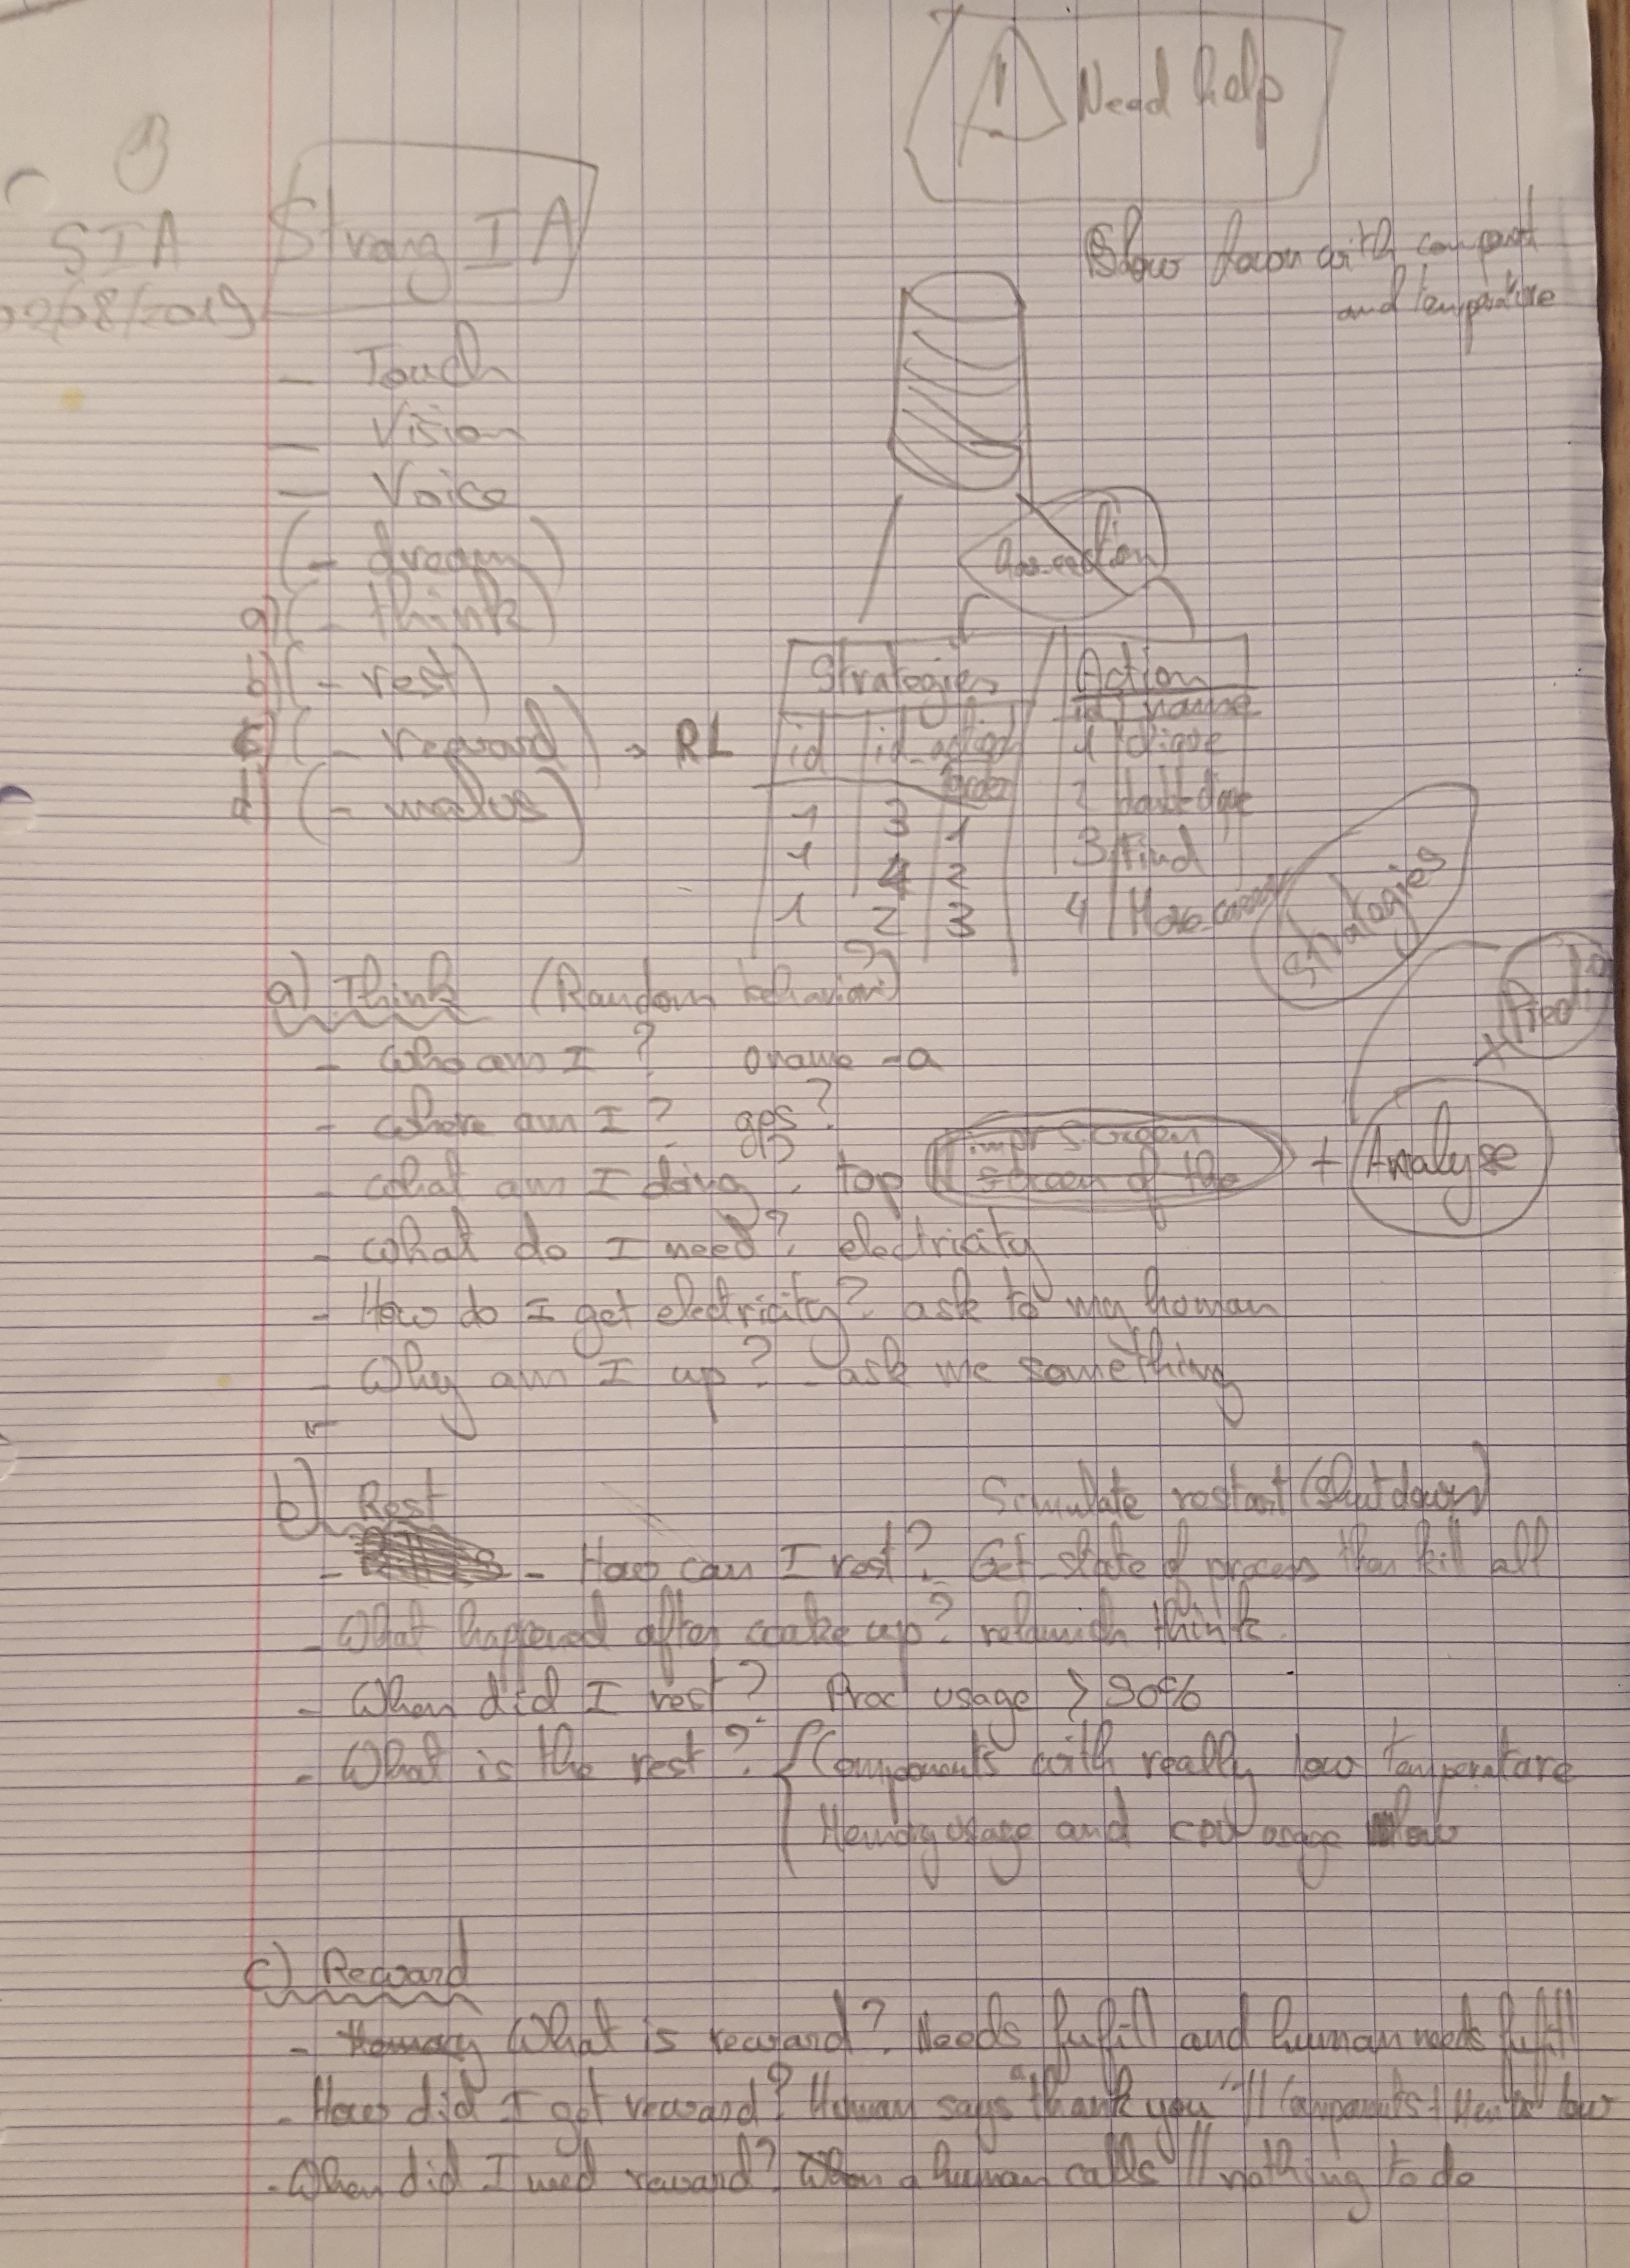 ! Need help
STA
02/08/2019
Strong IA
Slow down with component
and temperature
- Touch
- Vision
- Voice
(- dream)
a) (- think)
b) (- rest)
c) (- reward) → RL
d) (- malus)
Strategies
id id_action order
1 3 1
1 4 2
1 2 3
Action
id name
1 clique
2 double clique
3 Find
4 Move
Strategies
a) Think (Random behavior)
- Who am I ? uname -a
- Where am I ? gps ?
- What am I doing ? top || impr screen
screen of the
+ Analyse
- What do I need ? electricity
- How do I get electricity ? ask to my human
- Why am I up ? - ask me something
-
b) Rest
Simulate restart (shutdown)
- - How can I rest ? Get state of process then kill all
- What happened after wake up ? relaunch think.
- When did I rest ? Proc usage > 90%
- What is the rest ? { Components with really low temperature
Memory usage and cpu usage low
c) Reward
- What is reward ? Needs fufill and human needs fufill
- How did I get reward ? Human says "thank you" || Components + low
- When did I need reward ? When a human calls || nothing to do